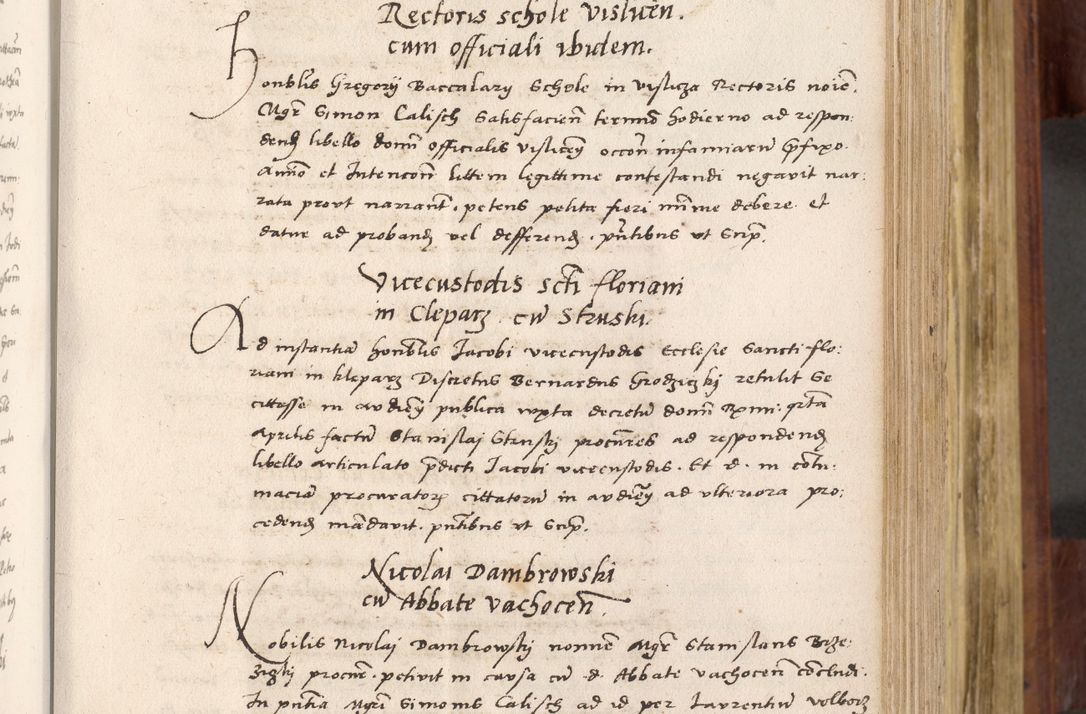 Rectoris schole Visliceñ.
cum officiali ibidem.
Honblis Gregorij Baccalary Schole in Vislicza Rectoris noiē.
Mgr̄ Simon Calisch Satisfacieñ termīo hodierno ad respon:
dendȝ libello domñ officialis Visliceñ occoñ infamiarū p̄fixo.
Animo et Intencoñ littem legittime contestandi negavit nar:
rata provt narrant̄. petens petita fieri mīme debere. et
datur ad probandȝ vel defferendȝ. pñtibus vt Scrip̄.
Vicecustodis scti floriani
in Cleparȝ cū Struski.
Ad instantiā honblis Jacobi vicecustodis Ecclesie Sancti flo:
riani in kleparȝ Discretus Bernardus Grodziczki retulit Se
cittasse in avdieñ publica iuxta decretū domñ Rxmi. qrta
Aprilis factū Stanislaj Struskj procures ad respondendȝ
libello articulato p̄dicti Jacobi vicecustodis. Et d. in cotu:
maciā procuratorȝ cittatorū in avdieñ ad vlteriora pro:
cedendȝ mādavit. pñtibus vt Scrip̄.
Nicolai Dambrowski
cū Abbate vachoceñ.
Nobilis Nicolaj Dambrowskj nomine Mgr̄ Stanislaus Brze:
Ziczkj procur̄. petivit in causa cū d. Abbate vachoceñ concludi.
In pñtia Mgri Simonis Calisch ad id per Laurentiū Volborȝ